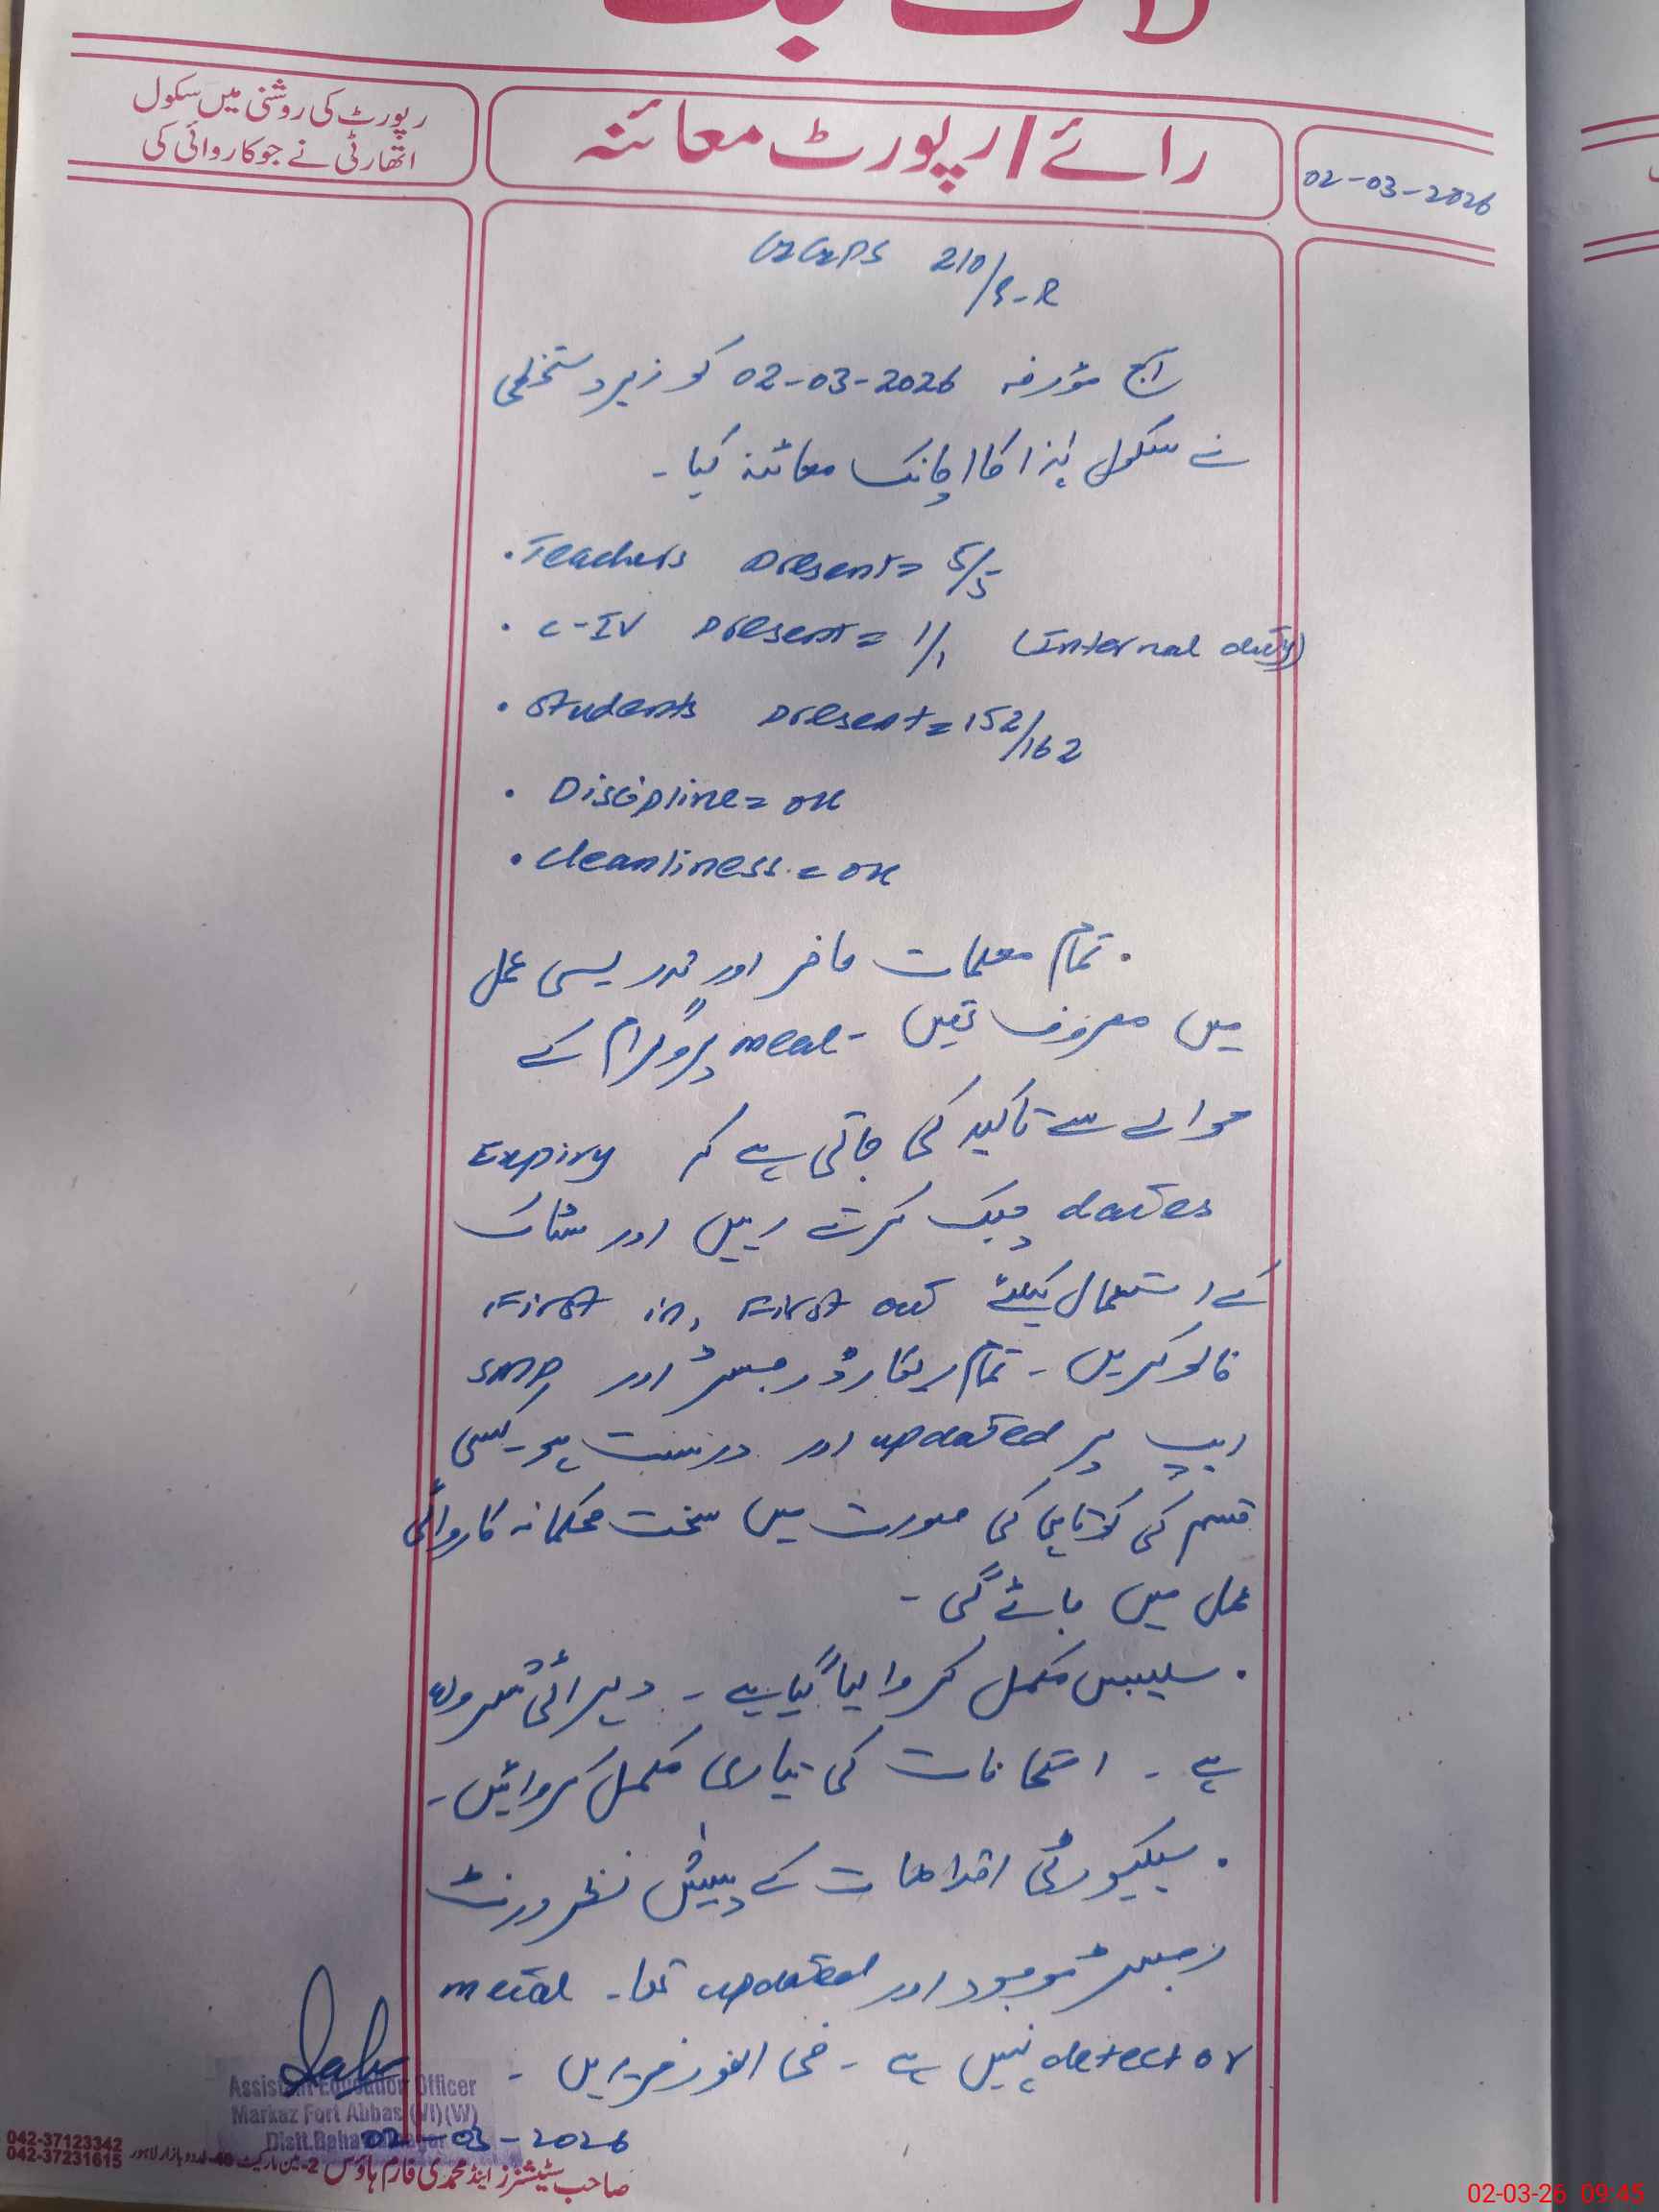 لاگ بک
رپورٹ کی روشنی میں سکول
اتھارٹی نے جو کاروائی کی
رائے / رپورٹ معائنہ
02-03-2026
GGPS 210/9-R
آج مؤرخہ 02-03-2026 کو زیر دستخطی
نے سکول ہٰذا کا اچانک معائنہ کیا۔
. Teachers Present = 5/5
. C-IV Present = 1/1 (Internal duty)
. Students Present = 152/162
. Discipline = OK
. Cleanliness = OK
. تمام معلمات حاضر اور تدریسی عمل
میں مصروف تھیں۔ meal پروگرام کے
حوالے سے تاکید کی جاتی ہے کہ Expiry
dates چیک کرتے رہیں اور سٹاک
کے استعمال کیلئے First in, First out
فالو کریں۔ تمام ریکارڈ رجسٹر اور SMP
ایپ پر updated اور درست ہو۔ کسی
قسم کی کوتاہی کی صورت میں سخت محکمانہ کاروائی
عمل میں جائے گی۔
. سلیبس مکمل کروا لیا گیا ہے۔ دہرائی شروع
ہے۔ امتحانات کی تیاری مکمل کروائیں۔
. سیکیورٹی اقدامات کے پیش نظر وزٹ
رجسٹر موجود اور updated تھا۔ metal
detector نہیں ہے۔ فی الفور خریدیں۔
Assistant Education Officer
Markaz Fort Abbas (VI)(W)
Distt. Bahawalnagar
02-03-2026
صاحب سٹیشنرز اینڈ محمدی فارم ہاؤس 2-مین مارکیٹ 40-اردو بازار لاہور
042-37123342
042-37231615
02-03-26 09:45